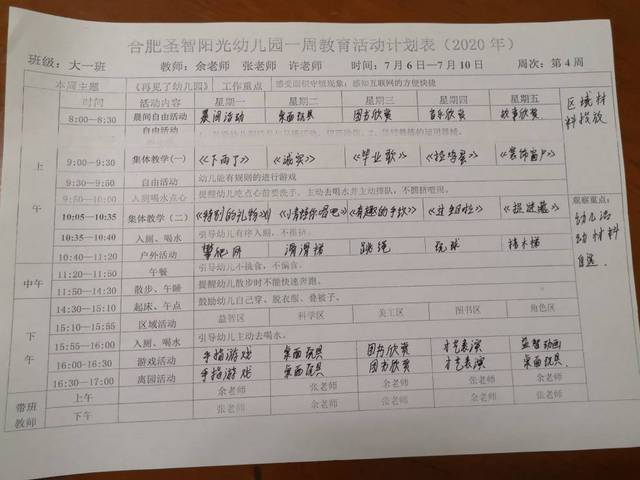 合肥圣智阳光幼儿园一周教育活动计划表（2020年）
班级：大一班 教师：余老师 张老师 许老师 时间：7月6日—7月10日 周次：第4周
本周主题 《再见了幼儿园》 工作重点 感受面积守恒现象；感知互联网的方便快捷
时间 活动内容 星期一 星期二 星期三 星期四 星期五 区域材料投放
8:00—8:30 晨间自由活动 晨间活动 桌面玩具 图书欣赏 音乐欣赏 故事欣赏
自由活动
上午
9:00—9:30 集体教学(一) 《下雨了》 《诚实》 《毕业歌》 《拉呀拉》 《装饰窗户》
9:30—9:50 自由活动 幼儿能有规则的进行游戏
9:50—10:00 入厕喝水点心 提醒幼儿吃点心前要洗手、主动去喝水并主动排队，不拥挤吧现。
10:05—10:35 集体教学（二） 《特别的礼物》 《有趣的手纹》 《捉迷藏》 观察重点：
10:35—10:40 入厕、喝水 引导幼儿有序入厕，不推挤。
10:40—11:20 户外活动 攀爬网 滑滑梯 跳绳 玩球 幼儿活动材料自选
中午
11:20—11:50 午餐 引导幼儿不挑食，不偏食。
11:50—14:30 散步、午睡 提醒幼儿散步时不能快速奔跑。
下午
14:30—15:10 起床、午点 鼓励幼儿自己穿、脱衣服、叠被子。
15:10—15:55 区域活动 益智区 科学区 美工区 图书区 角色区
15:55—16:00 入厕、喝水 引导幼儿主动去喝水。
16:00—16:30 游戏活动 手指游戏 桌面玩具 图书欣赏 才艺表演 益智动画
16:30—17:00 离园活动 手指游戏 桌面玩具 图书欣赏 才艺表演 桌面玩具.
带班教师 上午 余老师 张老师 余老师 张老师 余老师
下午 张老师 余老师 张老师 余老师 张老师